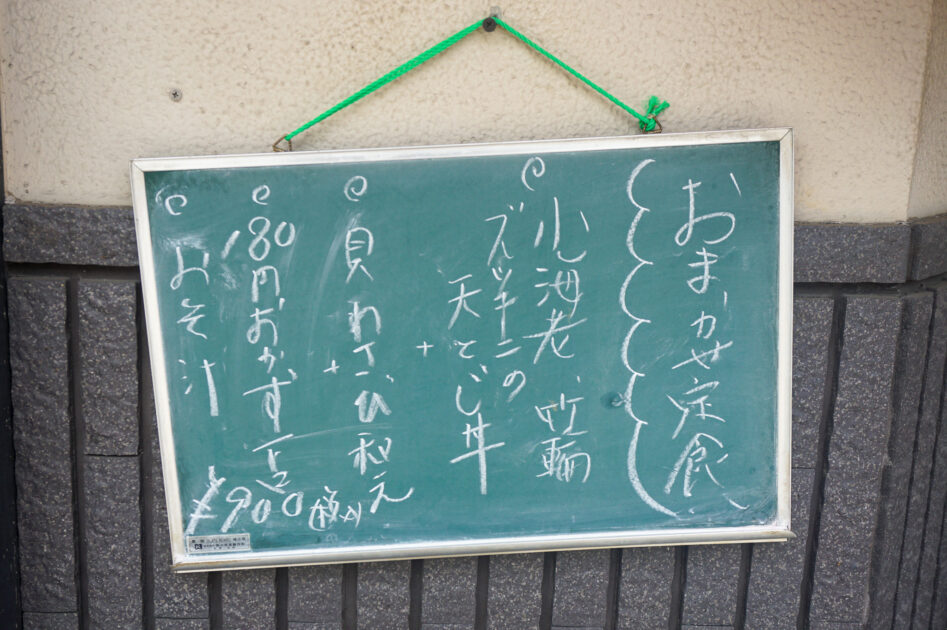 おまかせ定食
小海老、竹輪
ズッキーニの
天とじ丼
+
貝わさび和え
+
180円おかず一品
おそ汁
¥900(税込)